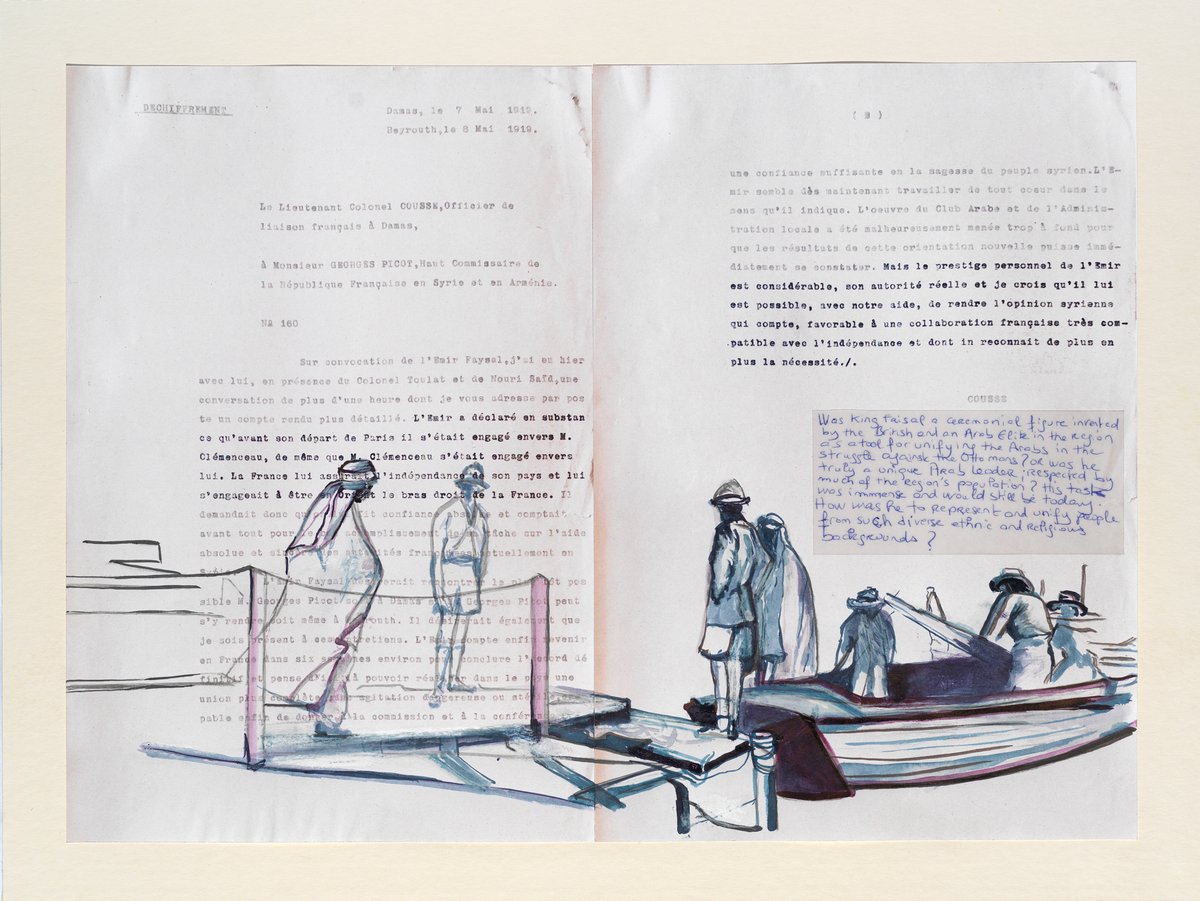 DECHIFFREMENT
Damas, le 7 Mai 1919.
Beyrouth,le 8 Mai 1919.
Le Lieutenant Colonel COUSSE,Officier de
liaison français à Damas,
à Monsieur GEORGES PICOT,Haut Commissaire de
la République Française en Syrie et en Arménie.
N° 160
Sur convocation de l'Emir Faysal,j'ai eu hier
avec lui, en présence du Colonel Toulat et de Nouri Saïd,une
conversation de plus d'une heure dont je vous adresse par pos
te un compte rendu plus détaillé. L'Emir a déclaré en substan
ce qu'avant son départ de Paris il s'était engagé envers M.
Clémenceau, de même que M. Clémenceau s'était engagé envers
lui. La France lui assurait l'indépendance de son pays et lui
s'engageait à être en orient le bras droit de la France. Il
demandait donc qu'on fit confiance absolue et comptait
avant tout pour accomplissement tâche sur l'aide
absolue et autorités françaises actuellement en
Syrie.
L'Emir Faysal désirerait rencontrer le plus tôt pos
sible M. Georges Picot soit à Damas Georges Picot peut
s'y rendre soit même à Beyrouth. Il désirerait également que
je sois présent à ces entretiens. L'Emir compte enfin revenir
en France dans six semaines environ pour conclure l'accord dé
finitif et pense d'ici là pouvoir réaliser dans le pays une
union plus complète agitation dangereuse ou
pable enfin de donner à la commission et à la conférence
( 2 )
une confiance suffisante en la sagesse du peuple syrien.L'E-
mir semble dès maintenant travailler de tout coeur dans le
sens qu'il indique. L'oeuvre du Club Arabe et de l'Adminis-
tration locale a été malheureusement menée trop à fond pour
que les résultats de cette orientation nouvelle puisse immé-
diatement se constater. Mais le prestige personnel de l'Emir
est considérable, son autorité réelle et je crois qu'il lui
est possible, avec notre aide, de rendre l'opinion syrienne
qui compte, favorable à une collaboration française très com-
patible avec l'indépendance et dont in reconnait de plus en
plus la nécessité./.
COUSSE
Was King Faisal a ceremonial figure invented
by the British and an Arab Elite in the region
as a tool for unifying the Arabs in the
struggle against the Ottomans? Or was he
truly a unique Arab leader respected by
much of the region's population? His task
was immense and would still be today.
How was he to represent and unify people
from such diverse ethnic and religious
backgrounds?